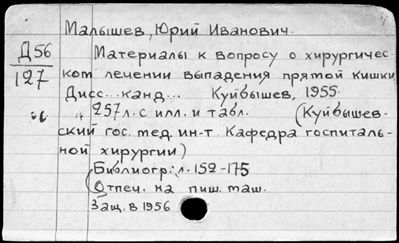 Малышев, Юрий Иванович.
Д56
127
Материалы к вопросу о хирургичес
ком лечении выпадения прямой кишки,
Дисс... канд... Куйбышев, 1955.
257л. с илл. и табл. (Куйбышев-
ский гос. мед. ин-т. Кафедра госпиталь-
ной хирургии)
(Библиогр.: л. 152-175
(Отпеч. на пиш. маш.
Защ. в 1956